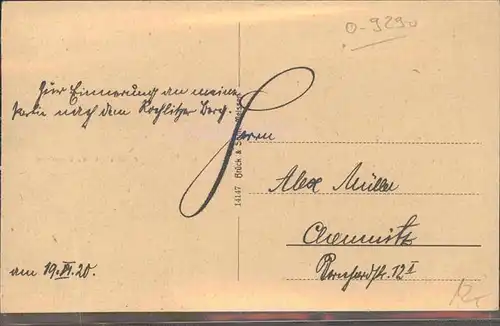 0-9290
Zur Erinnerung an meine
Partie nach dem Rochlitzer Berg.
Herrn
Alex Müller
Chemnitz
Bernhardstr. 12 I
am 19. VI. 20.
14147 Brück & Sohn, Meissen